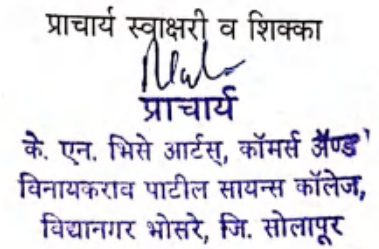 प्राचार्य स्वाक्षरी व शिक्का
प्राचार्य
के. एन. भिसे आर्टस्, कॉमर्स ॲण्ड
विनायकराव पाटील सायन्स कॉलेज,
विद्यानगर भोसरे, जि. सोलापूर